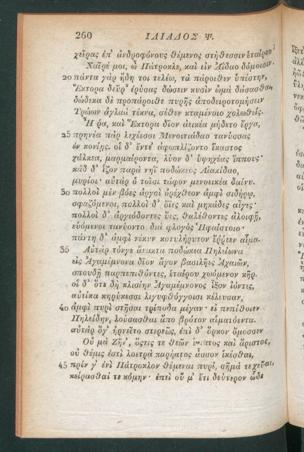 260 ΙΛΙΑΔΟΣ Ψ.
χεῖρας ἐπ' ἀνδροφόνους θέμενος στήθεσσιν ἑταίρου·
Χαῖρέ μοι, ὦ Πάτροκλε, καὶ εἰν Ἀΐδαο δόμοισιν·
20 πάντα γὰρ ἤδη τοι τελέω, τὰ πάροιθεν ὑπέστην,
Ἕκτορα δεῦρ' ἐρύσας δώσειν κυσὶν ὠμὰ δάσασθαι,
δώδεκα δὲ προπάροιθε πυρῆς ἀποδειροτομήσειν
Τρώων ἀγλαὰ τέκνα, σέθεν κταμένοιο χολωθείς.
Ἦ ῥα, καὶ Ἕκτορα δῖον ἀεικέα μήδετο ἔργα,
25 πρηνέα πὰρ λεχέεσσι Μενοιτιάδαο τανύσσας
ἐν κονίῃς. οἱ δ' ἔντε' ἀφωπλίζοντο ἕκαστος
χάλκεα, μαρμαίροντα, λύον δ' ὑψηχέας ἵππους·
κὰδ δ' ἷζον παρὰ νηῒ ποδώκεος Αἰακίδαο,
μυρίοι· αὐτὰρ ὁ τοῖσι τάφον μενοεικέα δαίνυ.
30 πολλοὶ μὲν βόες ἀργοὶ ὀρέχθεον ἀμφὶ σιδήρῳ,
σφαζόμενοι, πολλοὶ δ' ὄϊες καὶ μηκάδες αἶγες·
πολλοὶ δ' ἀργιόδοντες ὕες, θαλέθοντες ἀλοιφῇ,
εὑόμενοι τανύοντο διὰ φλογὸς Ἡφαίστοιο·
πάντη δ' ἀμφὶ νέκυν κοτυλήρυτον ἔρρεεν αἷμα.
35 Αὐτὰρ τόνγε ἄνακτα ποδώκεα Πηλείωνα
εἰς Ἀγαμέμνονα δῖον ἄγον βασιλῆες Ἀχαιῶν,
σπουδῇ παρπεπιθόντες, ἑταίρου χωόμενον κῆρ.
οἱ δ' ὅτε δὴ κλισίην Ἀγαμέμνονος ἷξον ἰόντες,
αὐτίκα κηρύκεσσι λιγυφθόγγοισι κέλευσαν,
40 ἀμφὶ πυρὶ στῆσαι τρίποδα μέγαν· εἰ πεπίθοιεν
Πηλείδην, λούσασθαι ἄπο βρότον αἱματόεντα.
αὐτὰρ ὅγ' ἠρνεῖτο στερεῶς, ἐπὶ δ' ὅρκον ὄμοσσεν·
Οὐ μὰ Ζῆν', ὅςτις τε θεῶν ὕπατος καὶ ἄριστος,
οὐ θέμις ἐστὶ λοετρὰ καρήατος ἆσσον ἱκέσθαι,
45 πρίν γ' ἐνὶ Πάτροκλον θέμεναι πυρί, σῆμά τε χεῦαι,
κείρασθαί τε κόμην· ἐπεὶ οὔ μ' ἔτι δεύτερον ὧδε